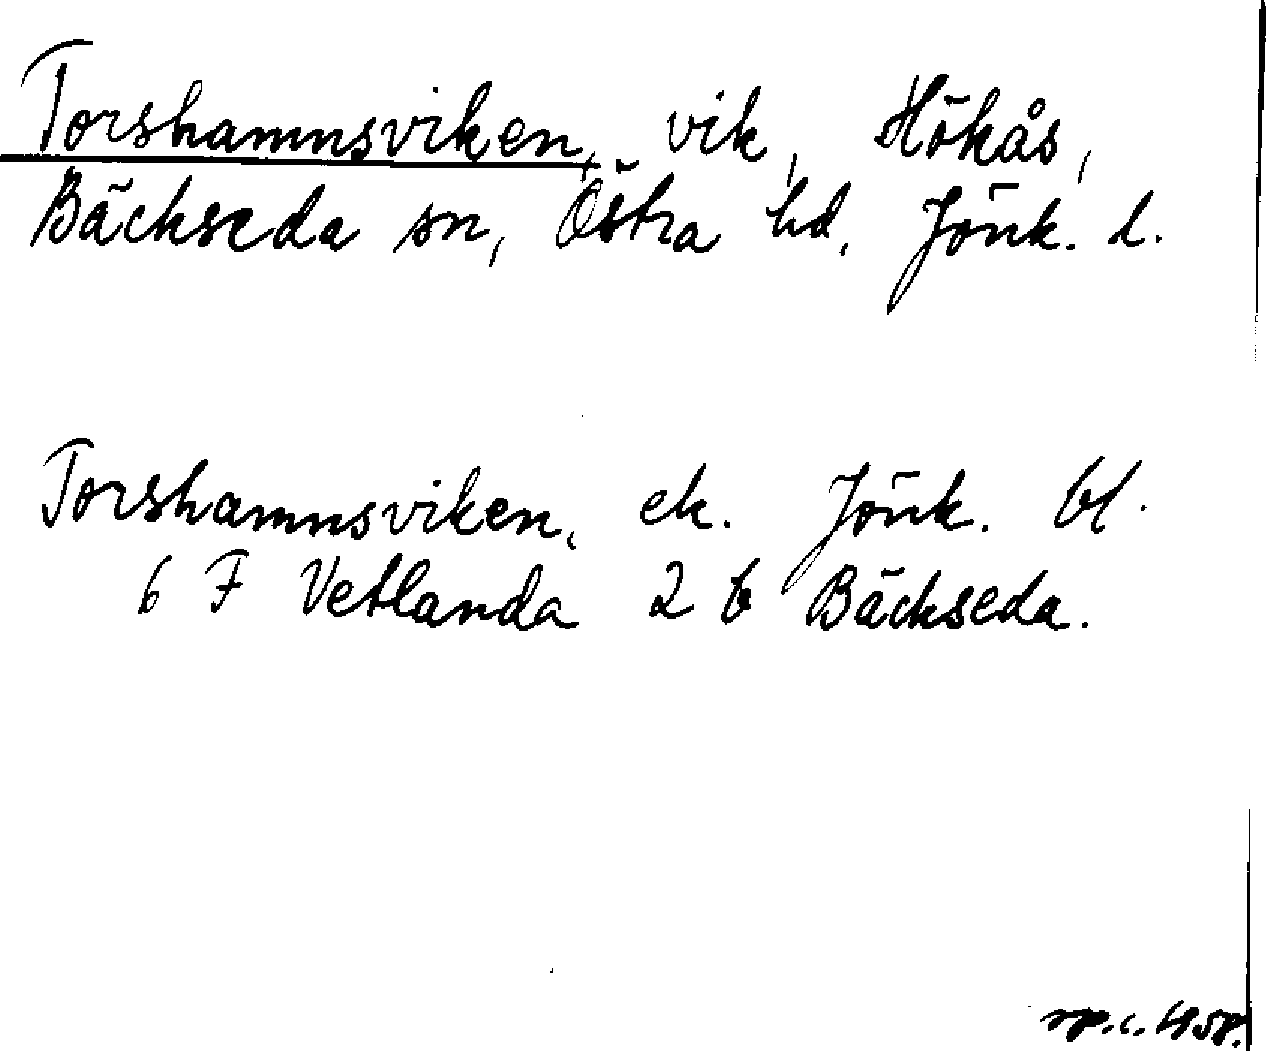 Torshamnsviken, vik, Hökås,
Bäckseda sn, Östra hd, Jönk. l.
Torshamnsviken, ek. Jönk. bl.
6 F Vetlanda 2 b Bäckseda.